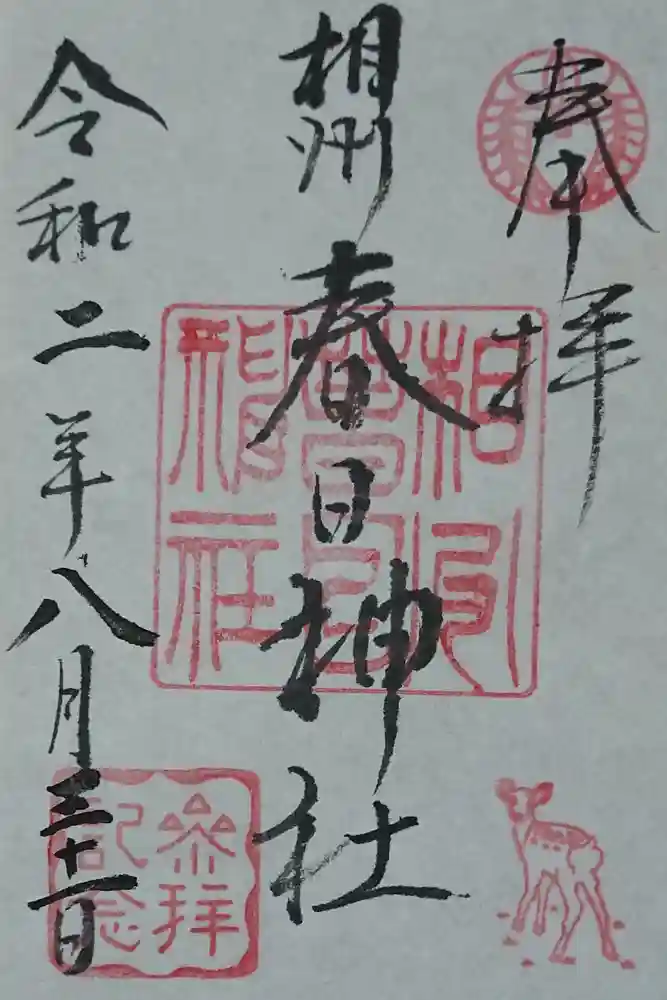 奉拝
相州
春日神社
令和二年八月三十一日
相州春日神社
参拝記念